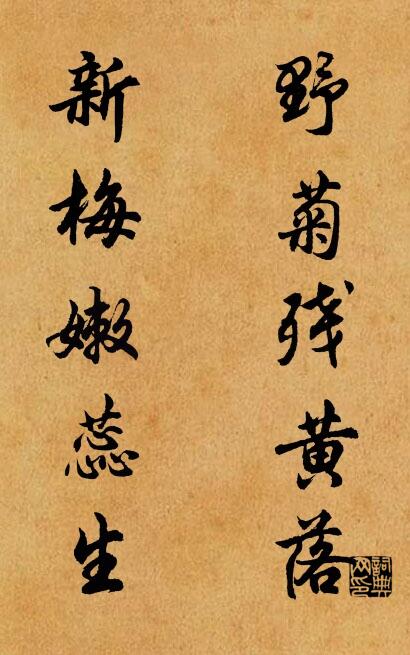 野菊残黄落
新梅嫩蕊生
詞典
网印